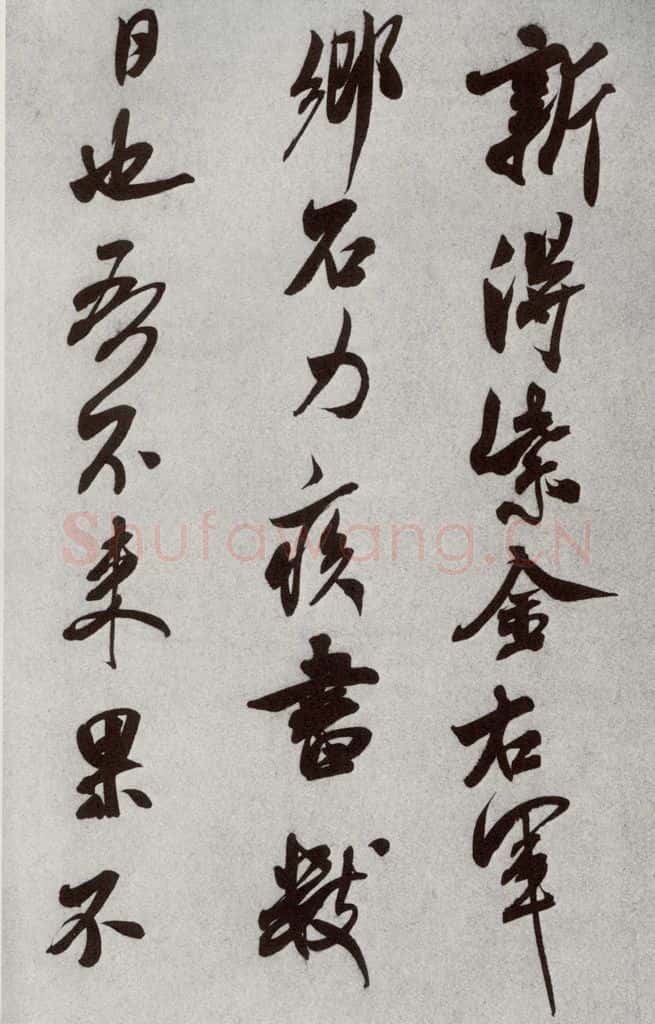 新得紫金右軍
鄉石力疾書數
日也吾不來果不
Shufawang.CN